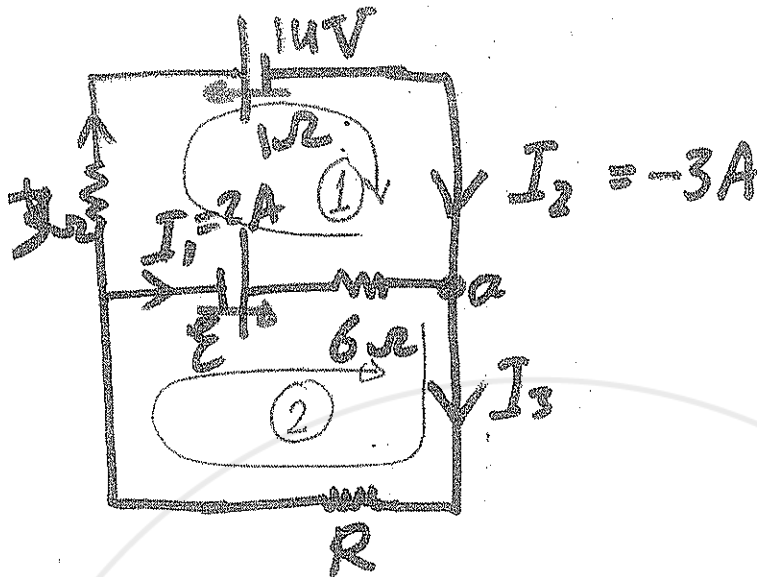 14V
1Ω
① I₂ = -3A
I₁ = 2A
a
ℰ 6Ω
② I₃
R